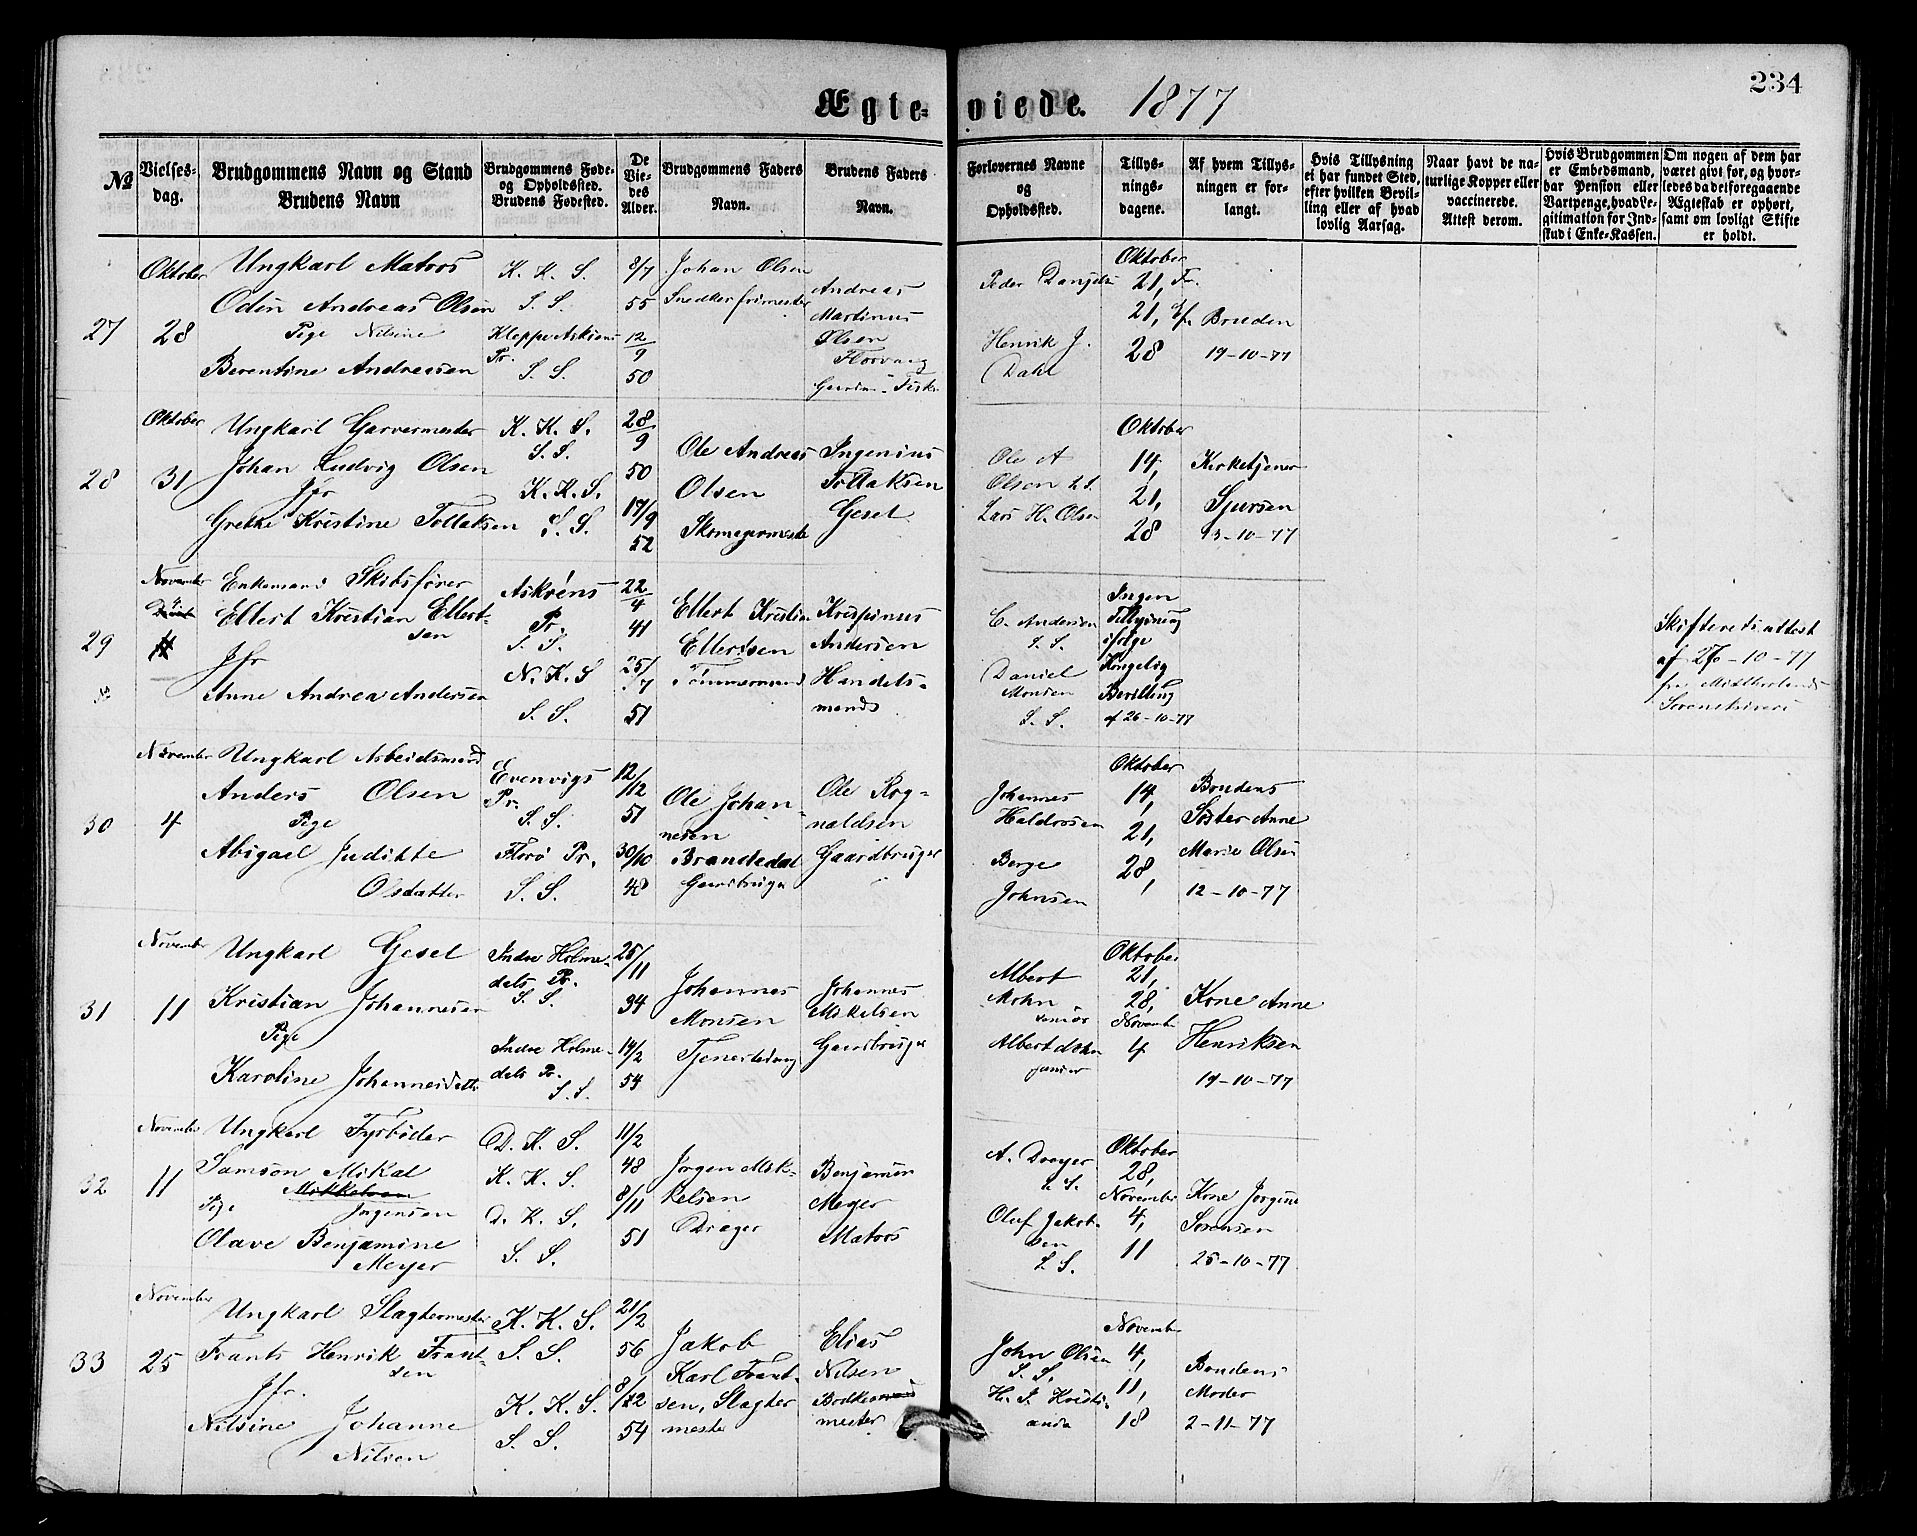 234
Ægte-viede. 1877
№
Vielses-
dag.
Brudgommens Navn og Stand
Brudens Navn
Brudgommens Føde-
og Opholdssted.
Brudens Fødested.
De
Vie-
des
Alder.
Brudgommens Faders
Navn.
Brudens Faders
Navn.
Forlovernes Navne
og
Opholdssted.
Tillys-
nings-
dagene.
Af hvem Tillys-
ningen er for-
langt.
Hvis Tillysning
ei har fundet Sted,
efter hvilken Bevil-
ling eller af hvad
lovlig Aarsag.
Naar havt de na-
turlige Kopper eller
vaccinerede.
Attest derom.
Hvis Brudgommen
er Embedsmand,
har Pension eller
Vartpenge, hvad Le-
gitimation for Ind-
skud i Enke-Kassen.
Om nogen af dem har
været givt før, og hvor-
ledes da det foregaaende
Ægteskab er ophørt,
samt om lovligt Skifte
er holdt.
27
Oktober
28
Ungkarl Matros
Odin Andreas Olsen
Pige Nilsine
Berentine Andreasen
K. K. S.
S. S.
Klepp Askøens
Pr.
S. S.
8/7
55
12/9
50
Johan Olsen
Snedkerfrimester
Andreas
Martinus
Olsen
Florvaag
Peder
Henrik J.
Dahl
Oktober
21,
21,
28
Bruden
19-10-77
28
Oktober
31
Ungkarl Garvermester
Johan Ludvig Olsen
Jfr
Grethe Kristine Tollaksen
K. K. S.
S. S.
K. K. S.
S. S.
28/9
50
17/9
52
Ole Andreas
Olsen
Skomagermester
Ingenius
Tollaksen
Gesel
Ole A
Olsen
Lars H. Olsen
Oktober
14,
21,
28
Kirketjener
Sjursen
13-10-77
29
November
Enkemand Skibsfører
Ellert Kristian Ellert-
sen
Jfr
Anne Andrea Andersen
Askøens
Pr.
S. S.
N. K. S
S. S.
22/4
41
25/7
51
Ellert Kristian
Ellertsen
Tømmermand
Krispinus
Andersen
Handels-
mand
C. Andersen
S. S.
Daniel
Monsen
S. S.
Ingen
Tillysning
ifølge
Kongelig
Bevilling
af 26-10-77
Skifteretsattest
af 27-10-77
fra
30
November
4
Ungkarl Arbeidsmand
Anders Olsen
Pige
Abigael Judithe
Olsdatter
Evenvigs
Pr.
S. S.
Florø Pr.
S. S.
12/12
51
30/10
48
Ole Johan-
nesen
Brandedal
Gaardbruger
Ole Rog-
naldsen
Gaardbruger
Johannes
Haldorsen
Berge
Johnsen
Oktober
14,
21,
28,
Brudens
Søster Anne
Marie Olsen
12-10-77
31
November
11
Ungkarl Gesel
Kristian Johannesen
Pige
Karoline Johannesdatter
Indre Holme-
dals Pr.
S. S.
Indre Holme-
dals Pr.
S. S.
25/11
34
14/2
54
Johannes
Monsen
Johannes
Mikelsen
Gaardbruger
Albert
Mohn
senior
Albert Mohn
junior
Oktober
21,
28,
November
4
Kone Anne
Henriksen
19-10-77
32
November
11
Ungkarl Fyrbøder
Samson Mikal
Mikkelsen
Jørgensen
Pige
Olave Benjamine
Meyer
D. K. S.
K. K. S.
D. K. S.
S. S.
11/2
48
8/11
51
Jørgen Mik-
kelsen
Drager
Benjamin
Meyer
Matros
A. Dreyer
S. S.
Oluf Jakob-
sen
S. S.
Oktober
28,
November
4,
11
Kone Jørgine
Sørensen
25-10-77
33
November
25
Ungkarl Slagtermester
Frants Henrik Frant-
sen
Jfr.
Nilsine Johanne
Nilsen
K. K. S.
S. S.
K. K. S.
S. S.
21/2
56
8/12
54
Jakob
Karl Frant-
sen, Slagter
mester
Elias
Nilsen
mester
John Olsen
S. S.
November
4,
11,
18
Brudens
Moder
2-11-77